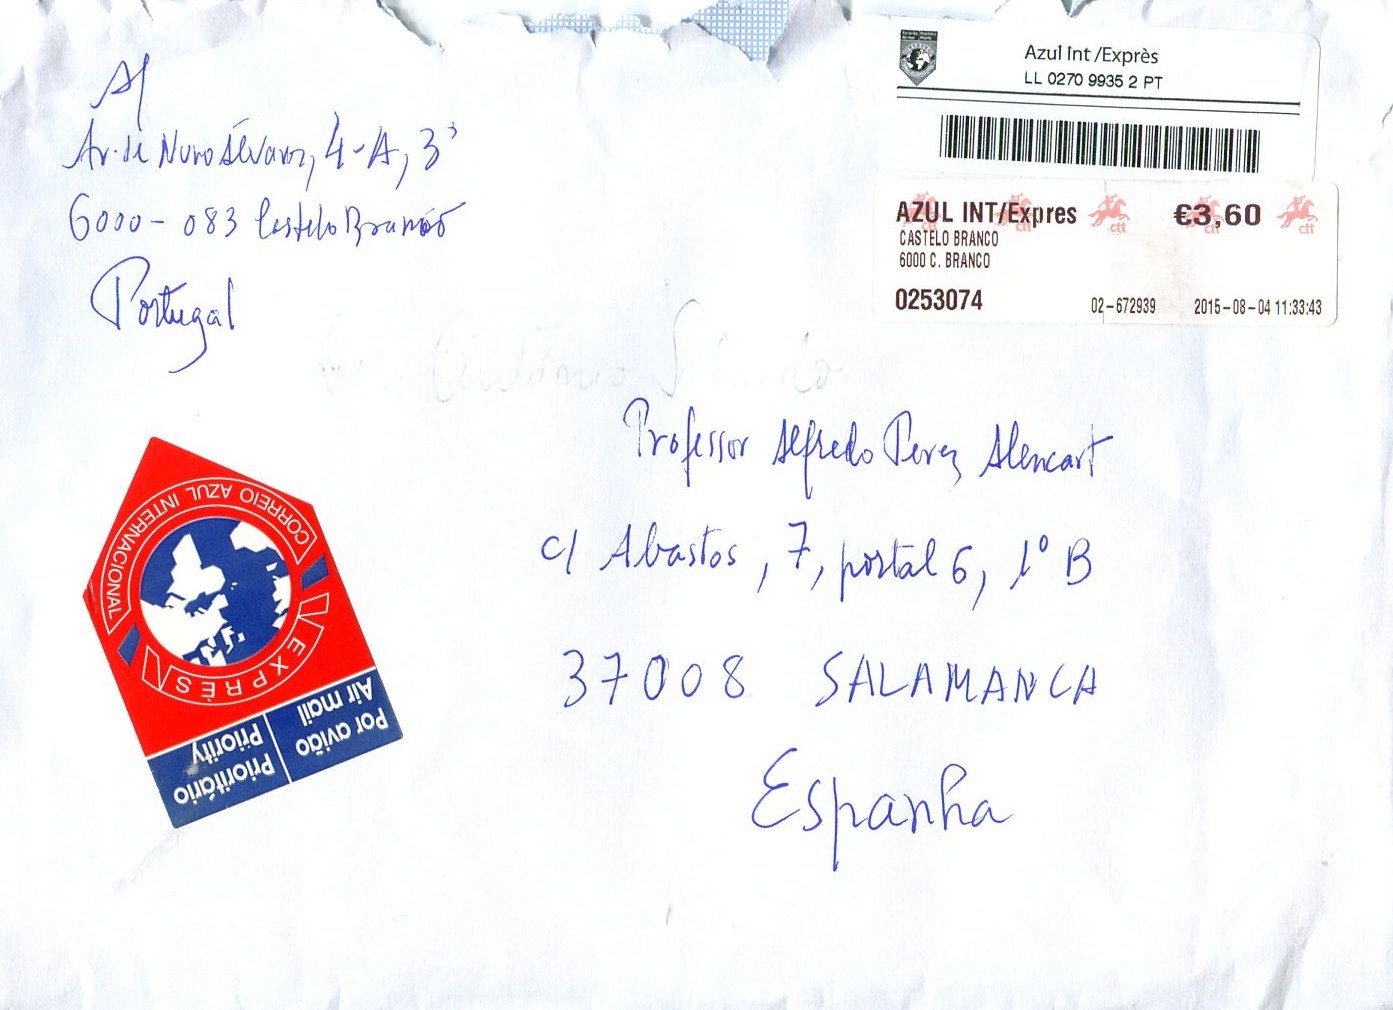 Av. de Nuno Álvares, 4-A, 3º
6000-083 Castelo Branco
Portugal
Azul Int /Exprès
LL 0270 9935 2 PT
AZUL INT/Expres €3,60
ctt ctt ctt ctt ctt
CASTELO BRANCO
6000 C. BRANCO
0253074 02-672939 2015-08-04 11:33:43
Professor Alfredo Perez Alencart
c/ Abastos, 7, portal 6, 1º B
37008 SALAMANCA
Espanha
CORREIO AZUL INTERNACIONAL
EXPRÈS
Por avião
Air mail
Prioritário
Priority